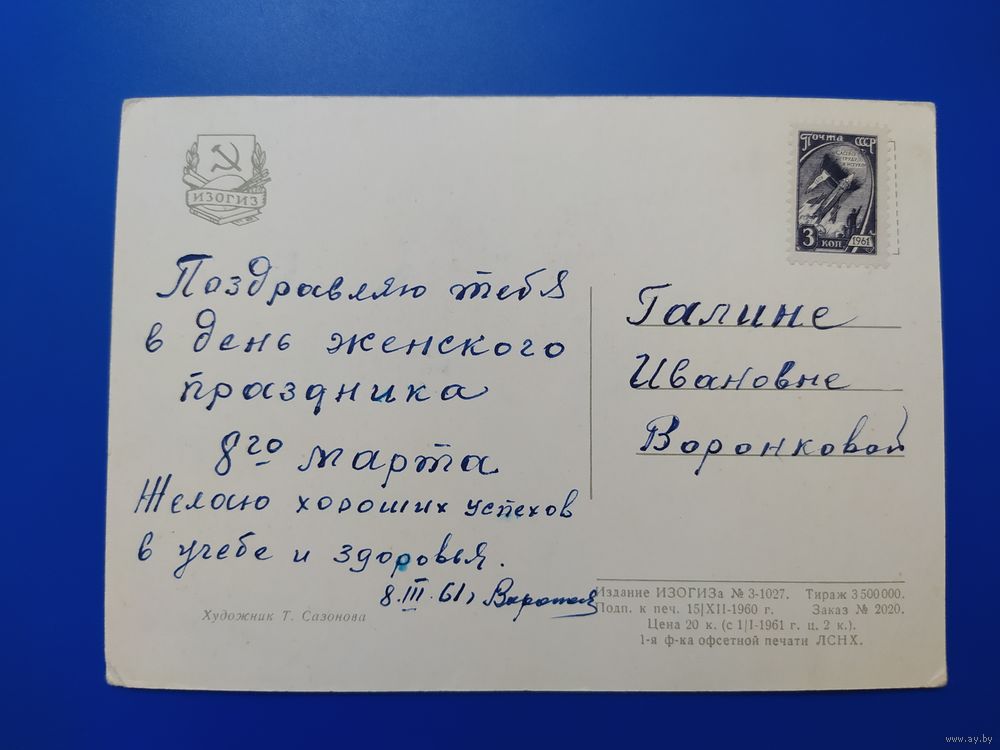 ИЗОГИЗ
Почта СССР
3 КОП
1961
Поздравляю тебя
в день женского
праздника
8го марта
Желаю хороших успехов
в учебе и здоровья.
8.III.61г
Художник Т. Сазонова
Галине
Ивановне
Воронковой
Издание ИЗОГИЗа № 3-1027. Тираж 3 500 000.
Подп. к печ. 15|XII-1960 г. Заказ № 2020.
Цена 20 к. (с 1|I-1961 г. ц. 2 к.).
1-я ф-ка офсетной печати ЛСНХ.
www.ay.by